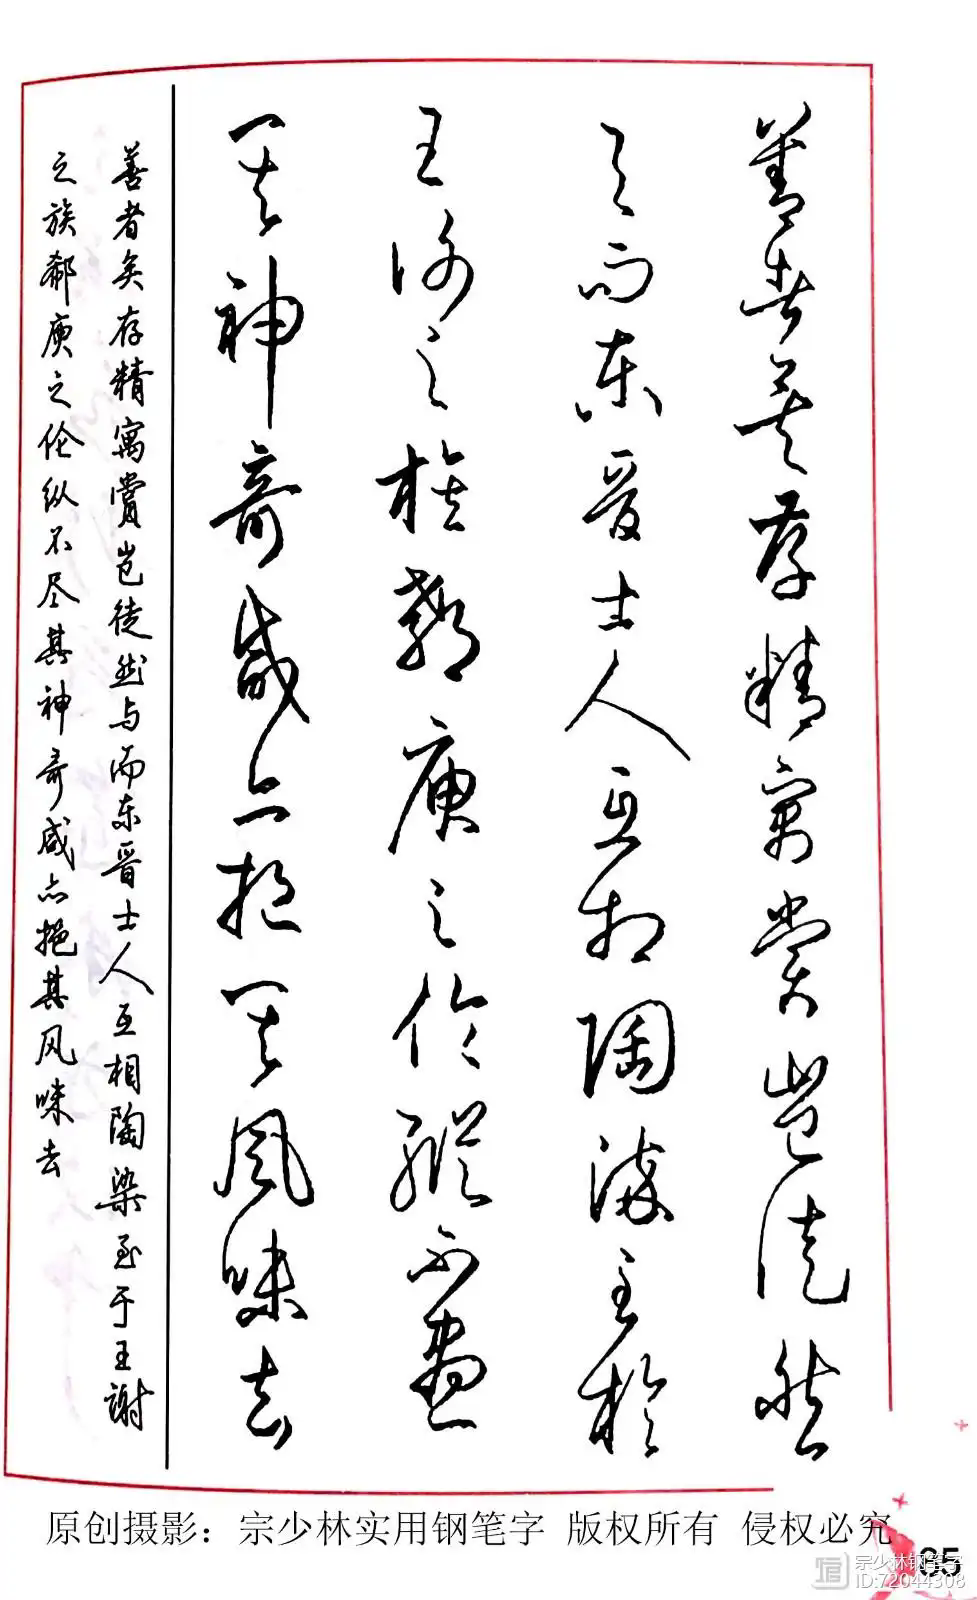 善者矣存精寓賞豈徒然
與而東晉士人互相陶染至於
王謝之族郗庾之倫縱不盡
其神奇咸亦挹其風味去
善者矣存精寓赏岂徒然与而东晋士人互相陶染至于王謝
之族郗庾之伦纵不尽其神奇咸亦挹其风味去
原创摄影：宗少林实用钢笔字 版权所有 侵权必究
宗少林钢笔字
ID:72044308